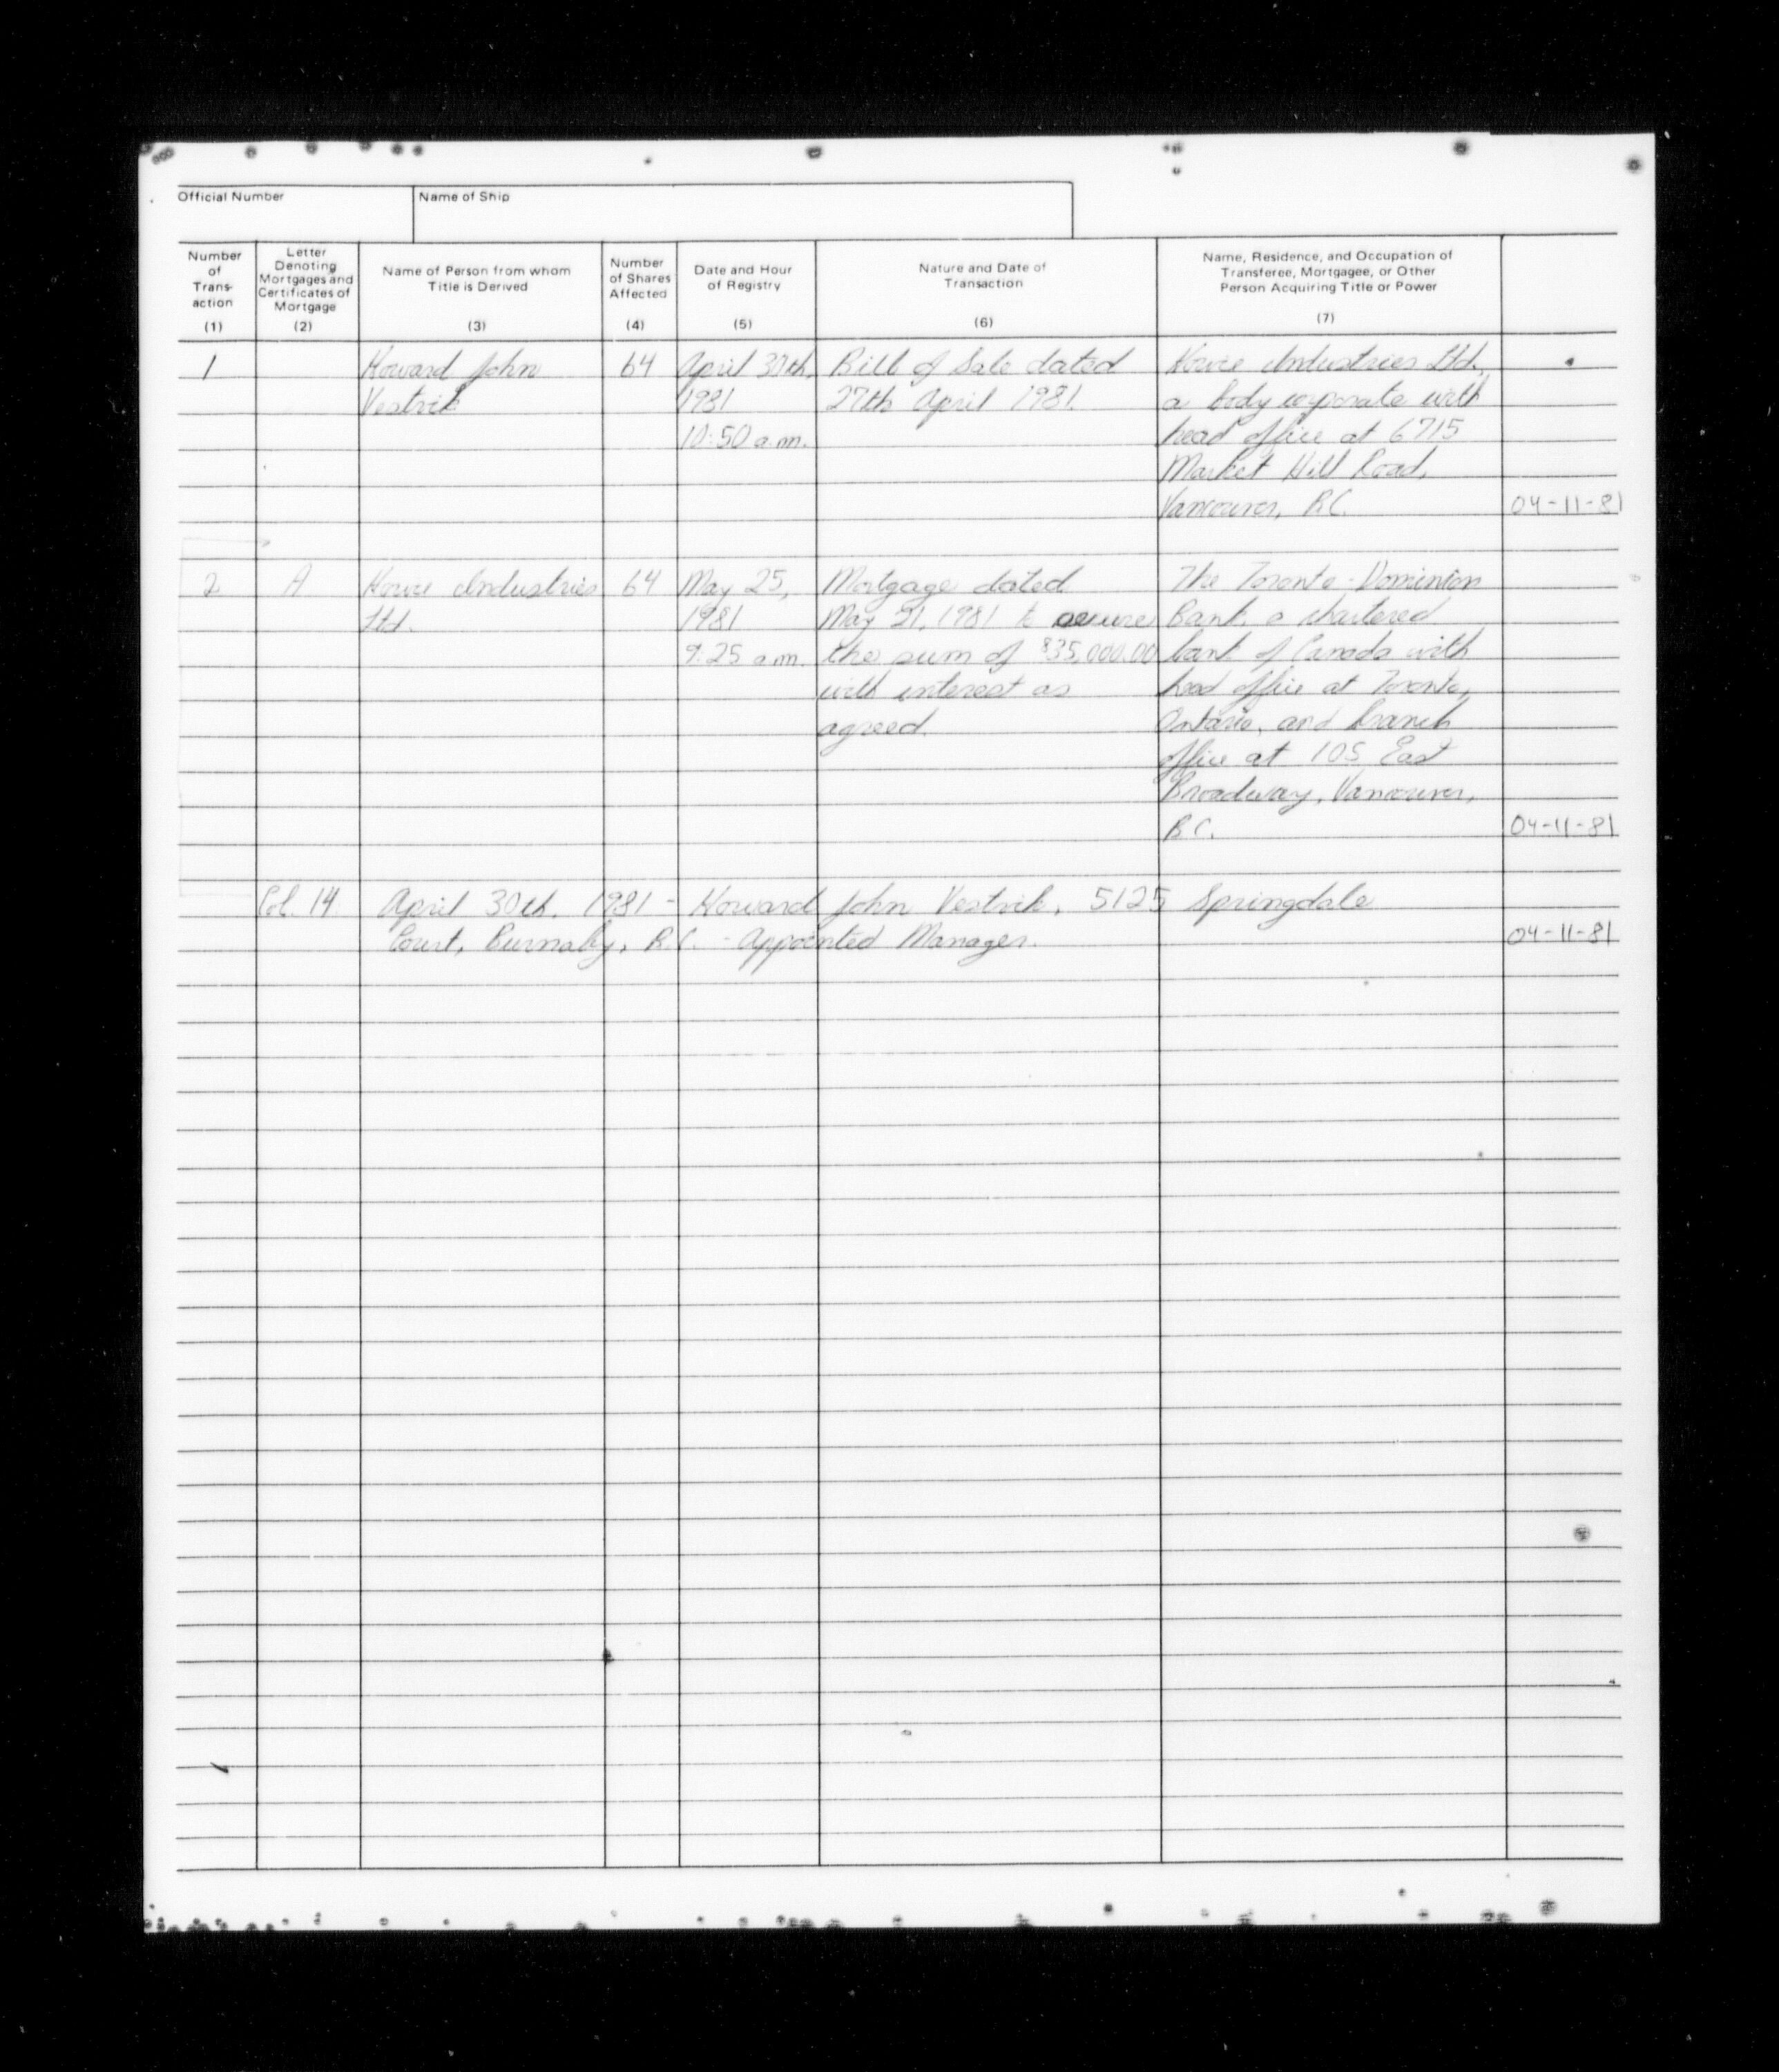 Official Number
Name of Ship
Number of Trans- action (1)
Letter Denoting Mortgages and Certificates of Mortgage (2)
Name of Person from whom Title is Derived (3)
Number of Shares Affected (4)
Date and Hour of Registry (5)
Nature and Date of Transaction (6)
Name, Residence, and Occupation of Transferee, Mortgagee, or Other Person Acquiring Title or Power (7)
1 Howard John 64 April 30th, Bill of Sale dated Howe Industries Ltd.,
Vestrik 1981 27th April 1981. a body corporate with
10:50 a.m. head office at 6715
Market Hill Road,
Vancouver, B.C. 04-11-81
2 A Howe Industries 64 May 25, Mortgage dated The Toronto-Dominion
Ltd. 1981 May 21, 1981 to secure Bank, a chartered
9:25 a.m. the sum of $35,000.00 bank of Canada with
with interest as head office at Toronto,
agreed. Ontario, and branch
office at 105 East
Broadway, Vancouver,
B.C. 04-11-81
Col. 14 April 30th, 1981 - Howard John Vestrik, 5125 Springdale
Court, Burnaby, B.C. - Appointed Manager. 04-11-81